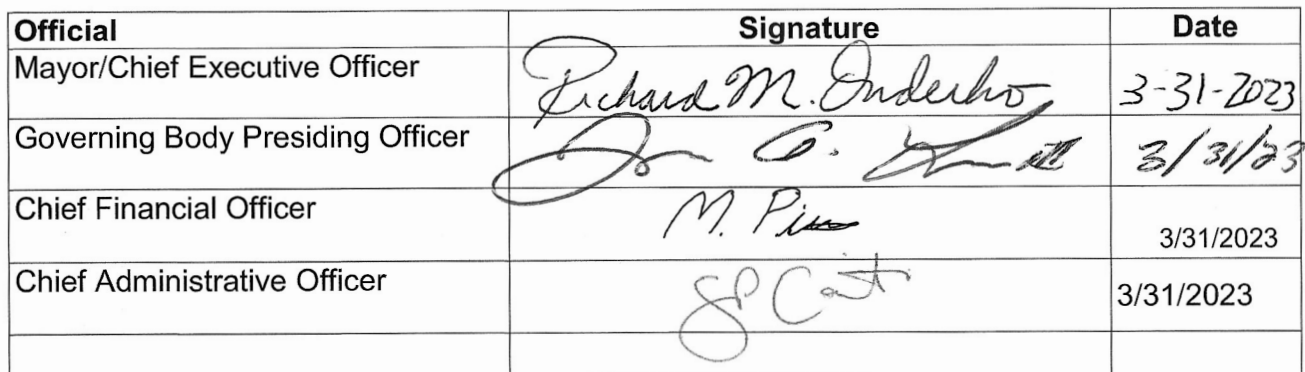 Official Signature Date
Mayor/Chief Executive Officer Richard M. 3-31-2023
Governing Body Presiding Officer 3/31/23
Chief Financial Officer M. 3/31/2023
Chief Administrative Officer 3/31/2023